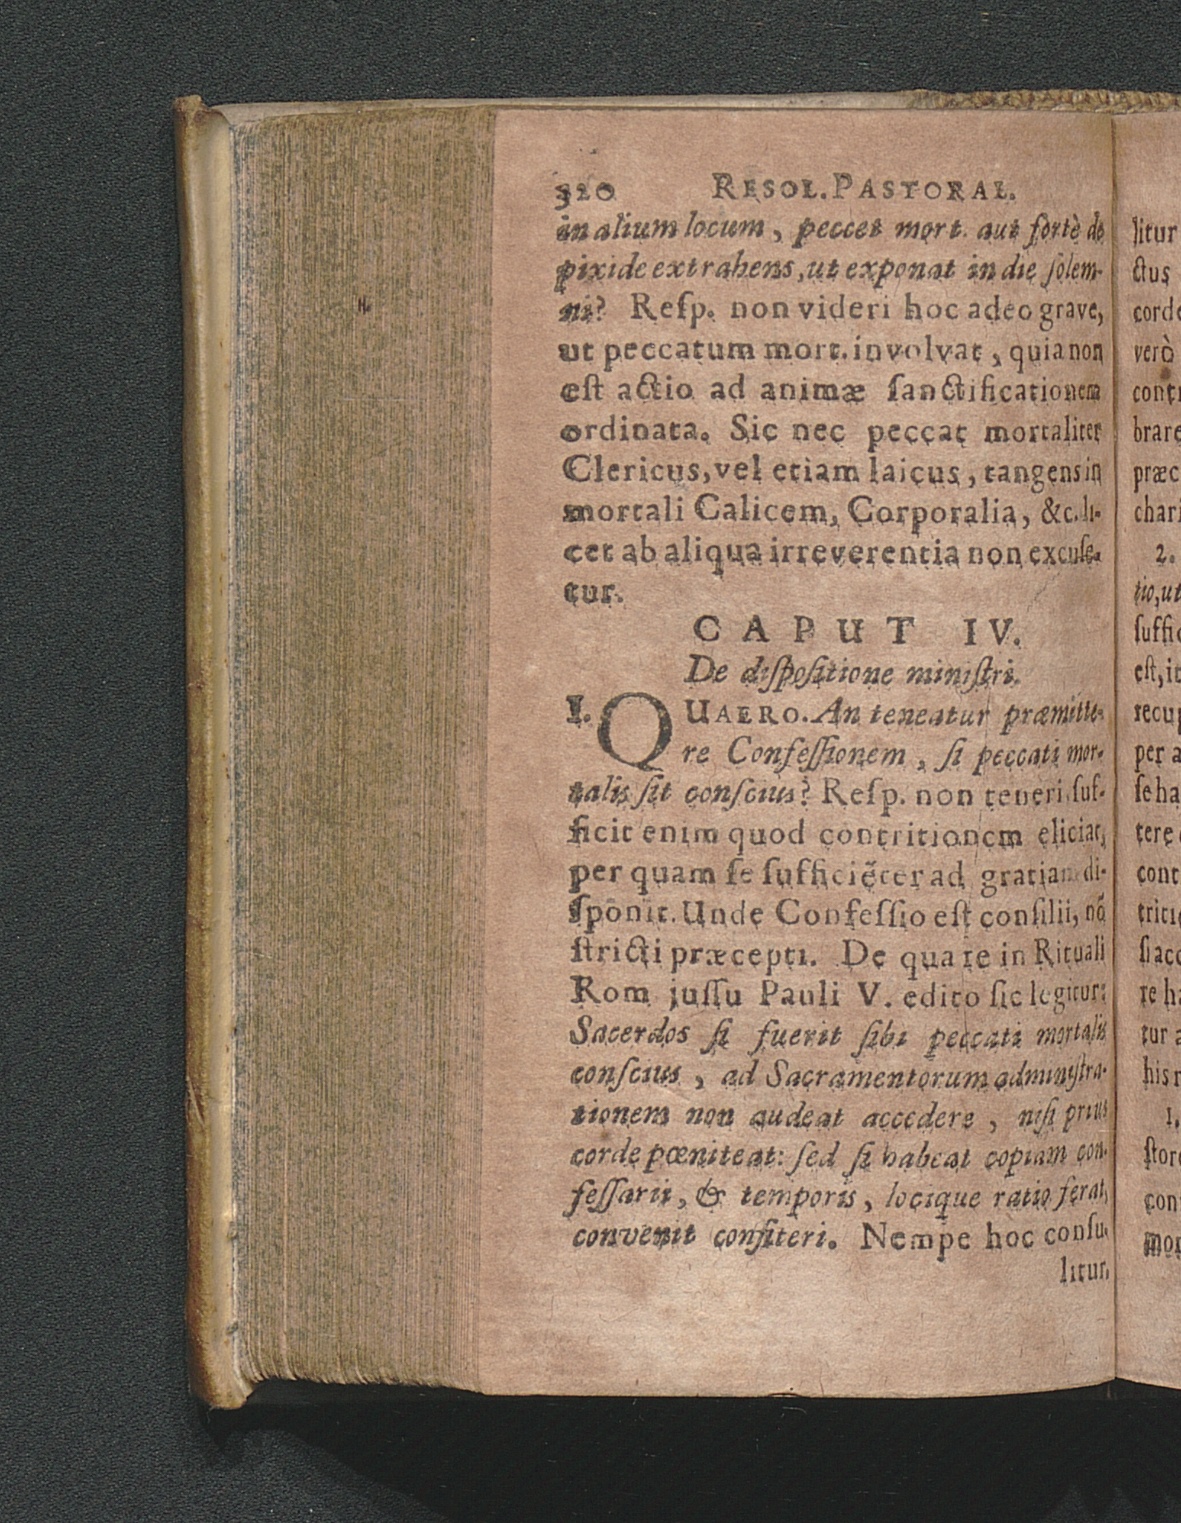 320 RESOL. PASTORAL.
in alium locum, peccet mort. aut fortè de
pixide extrahens, ut exponat in die ſolem-
ni? Reſp. non videri hoc adeo grave,
ut peccatum mort. involvat, quia non
eſt actio ad animæ ſanctificationem
ordinata. Sic nec peccat mortaliter
Clericus, vel etiam laicus, tangens in
mortali Calicem, Corporalia, &c. li-
cet ab aliqua irreverentia non excuſe-
tur.
CAPUT IV.
De diſpoſitione miniſtri.
I. QUAERO. An teneatur præmitte-
re Confeſſionem, ſi peccati mor-
talis ſit conſcius? Reſp. non teneri, ſuf-
ficit enim quod contritionem eliciat,
per quam ſe ſufficiẽter ad gratiam di-
ſponit. Unde Confeſſio eſt conſilii, nõ
ſtricti præcepti. De qua re in Rituali
Rom juſſu Pauli V. edito ſic legitur:
Sacerdos ſi fuerit ſibi peccati mortalis
conſcius, ad Sacramentorum adminiſtra-
tionem non audeat accedere, niſi prius
corde pœniteat: ſed ſi habeat copiam con-
feſſarii, & temporis, locique ratio ferat,
convenit confiteri. Nempe hoc conſu-
litur,
litur
ctus
verò
brare
præc
chari
2.
tio, ut
eſt, it
per a
ſe ha
cont
re ha
tur a
1.